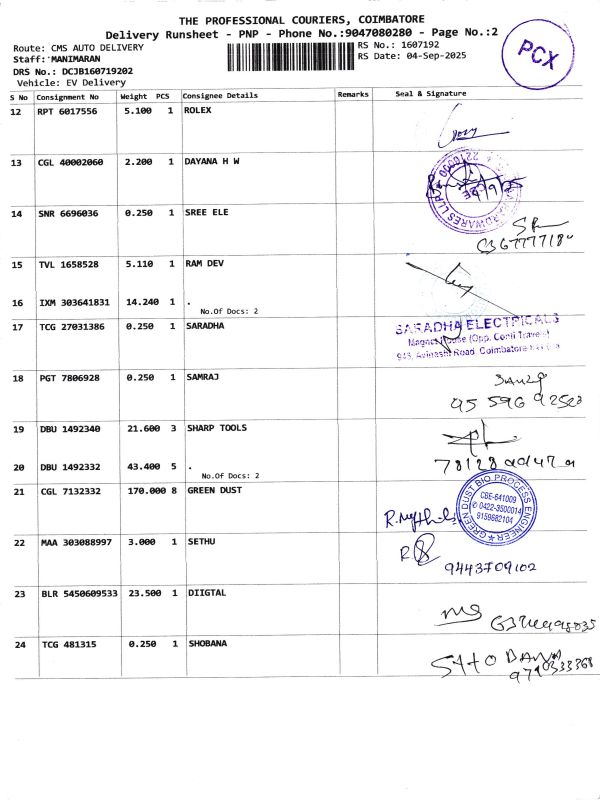 THE PROFESSIONAL COURIERS, COIMBATORE
Delivery Runsheet - PNP - Phone No.:9047080280 - Page No.:2
Route: CMS AUTO DELIVERY
RS No.: 1607192
Staff: MANIMARAN
RS Date: 04-Sep-2025
DRS No.: DCJB160719202
Vehicle: EV Delivery
PCX
S No Consignment No Weight PCS Consignee Details Remarks Seal & Signature
12 RPT 6017556 5.100 1 ROLEX
13 CGL 40002060 2.200 1 DAYANA H W
14 SNR 6696036 0.250 1 SREE ELE
15 TVL 1658528 5.110 1 RAM DEV
16 IXM 303641831 14.240 1 .
No.Of Docs: 2
17 TCG 27031386 0.250 1 SARADHA
SARADHA ELECTRICALS
18 PGT 7806928 0.250 1 SAMRAJ
19 DBU 1492340 21.600 3 SHARP TOOLS
20 DBU 1492332 43.400 5 .
No.Of Docs: 2
21 CGL 7132332 170.000 8 GREEN DUST
GREEN DUST BIO PROCESS ENGINEER
CBE-641009
0422-3500014
9159682104
22 MAA 303088997 3.000 1 SETHU
9443709102
23 BLR 5450609533 23.500 1 DIIGTAL
24 TCG 481315 0.250 1 SHOBANA